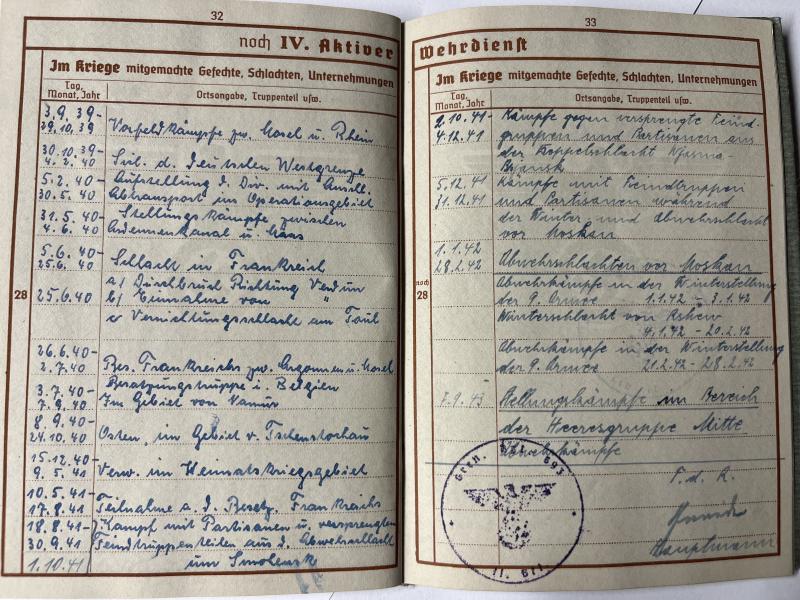 32
noch IV. Aktiver
Im Kriege mitgemachte Gefechte, Schlachten, Unternehmungen
Tag, Monat, Jahr
Ortsangabe, Truppenteil usw.
28
3.9.39-
29.10.39 Vorfeldkämpfe zw. Mosel u. Rhein
30.10.39-
4.2.40 Sich. d. deutschen Westgrenze
5.2.40- Aufstellung d. Div. mit Anschl.
30.5.40 Abtransport ins Operationsgebiet
31.5.40- Stellungskämpfe zwischen
4.6.40 Ardennenkanal u. Maas
5.6.40- Schlacht in Frankreich
25.6.40 a) Durchbruch Richtung Verdun
25.6.40 b) Einnahme von "
c) Vernichtungsschlacht um Toul
26.6.40- Bes. Frankreichs zw. Argonnen u. Mosel
2.7.40
3.7.40- Besatzungstruppe i. Belgien
7.9.40 Im Gebiet von Namur
8.9.40-
24.10.40 Osten, im Gebiet v. Tschenstochau
15.12.40-
9.5.41 Verw. im Heimatkriegsgebiet
10.5.41-
17.8.41 Teilnahme a. d. Besetz. Frankreichs
18.8.41- Kampf mit Partisanen u. versprengten
30.9.41 Feindtruppenteilen aus d. Abwehrschlacht
1.10.41 um Smolensk
33
Wehrdienst
Im Kriege mitgemachte Gefechte, Schlachten, Unternehmungen
Tag, Monat, Jahr
Ortsangabe, Truppenteil usw.
noch 28
2.10.41- Kämpfe gegen versprengte Feind-
4.12.41 gruppen und Partisanen aus
der Doppelschlacht Wjasma-
Brjansk
5.12.41 Kämpfe mit Feindtruppen
31.12.41 und Partisanen während
der Winter- und Abwehrschlacht
vor Moskau
1.1.42
28.2.42 Abwehrschlachten vor Moskau
Abwehrkämpfe in der Winterstellung
der 9. Armee 1.1.42 - 3.1.42
Winterschlacht von Rshew
4.1.42 - 20.2.42
Abwehrkämpfe in der Winterstellung
der 9. Armee 21.2.42 - 28.2.42
7.9.43 Stellungskämpfe im Bereich
der Heeresgruppe Mitte
Abwehrkämpfe
F. d. R.
Hauptmann
Gren. Rgt. 693